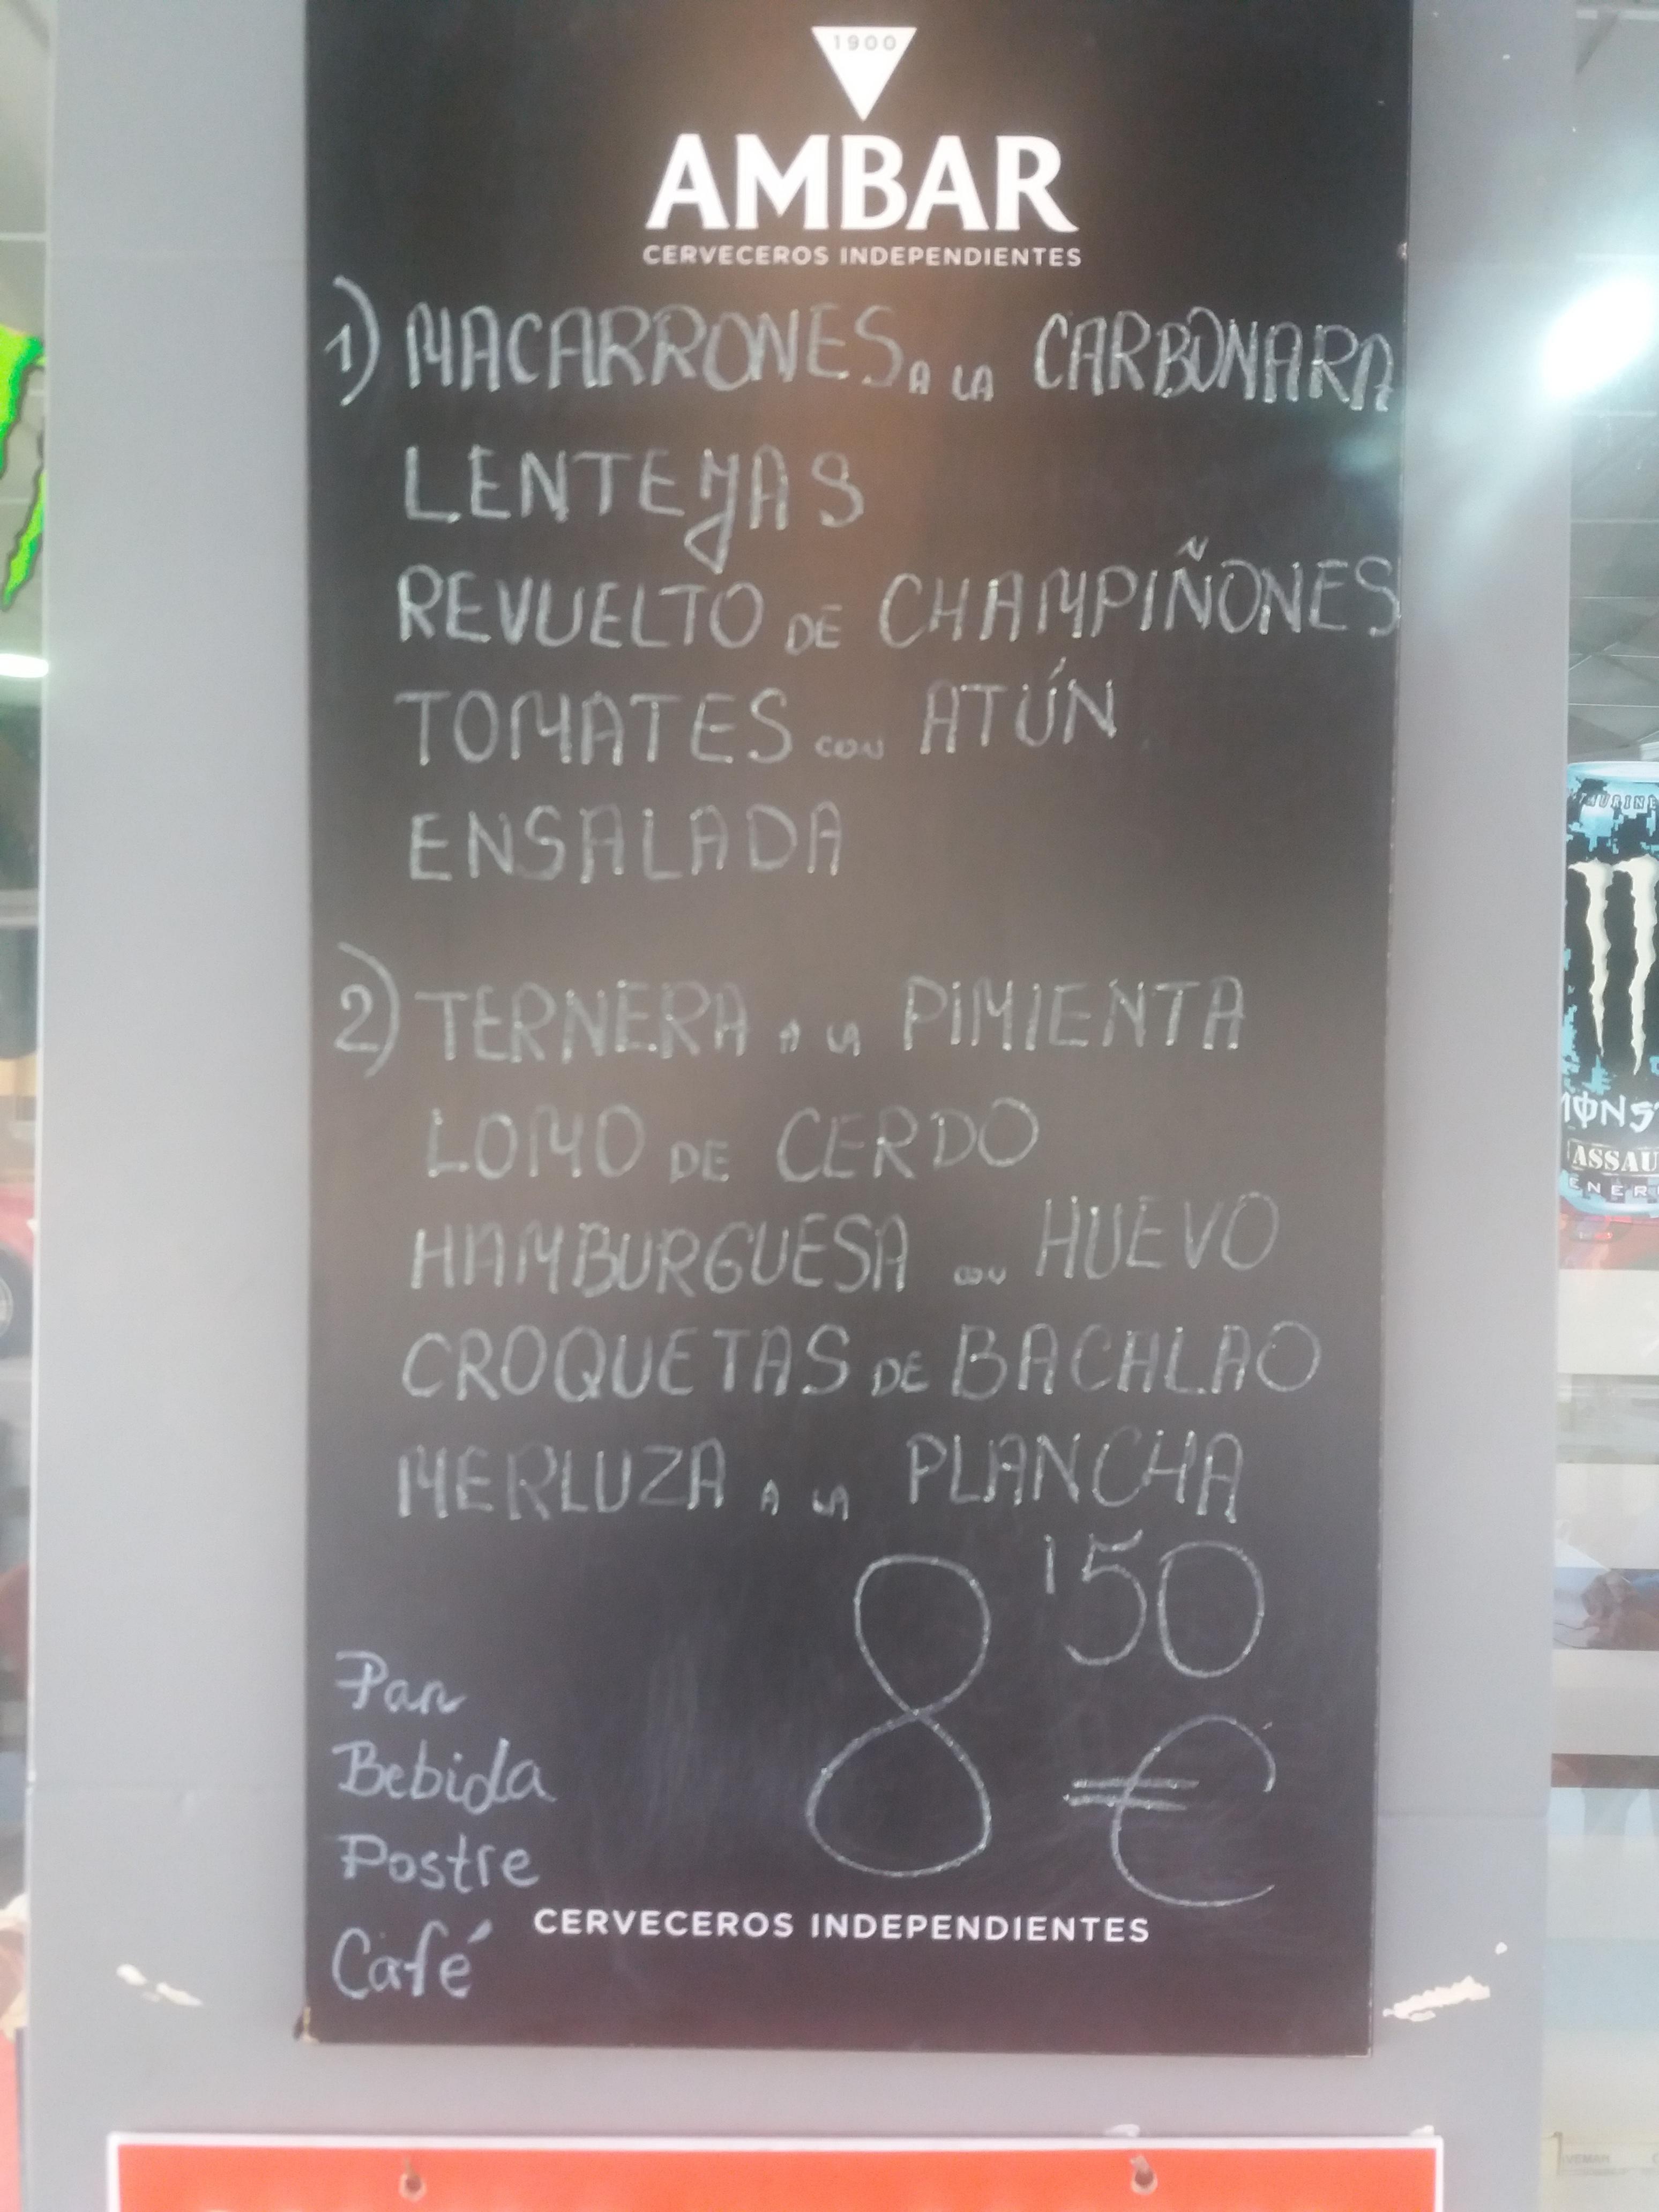 1900
AMBAR
CERVECEROS INDEPENDIENTES
1) MACARRONES A LA CARBONARA
LENTEJAS
REVUELTO DE CHAMPIÑONES
TOMATES CON ATÚN
ENSALADA
2) TERNERA A LA PIMIENTA
LOMO DE CERDO
HAMBURGUESA CON HUEVO
CROQUETAS DE BACALAO
MERLUZA A LA PLANCHA
8'50 €
Pan
Bebida
Postre
Café
CERVECEROS INDEPENDIENTES